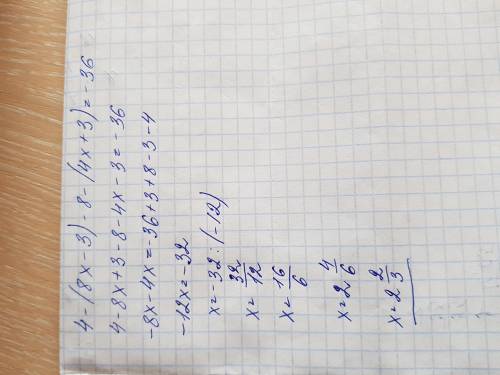 4-(8x-3)-8-(4x+3)=-36
4-8x+3-8-4x-3=-36
-8x-4x=-36+3+8-3-4
-12x=-32
x=-32:(-12)
x=32/12
x=16/6
x=2 4/6
x=2 2/3